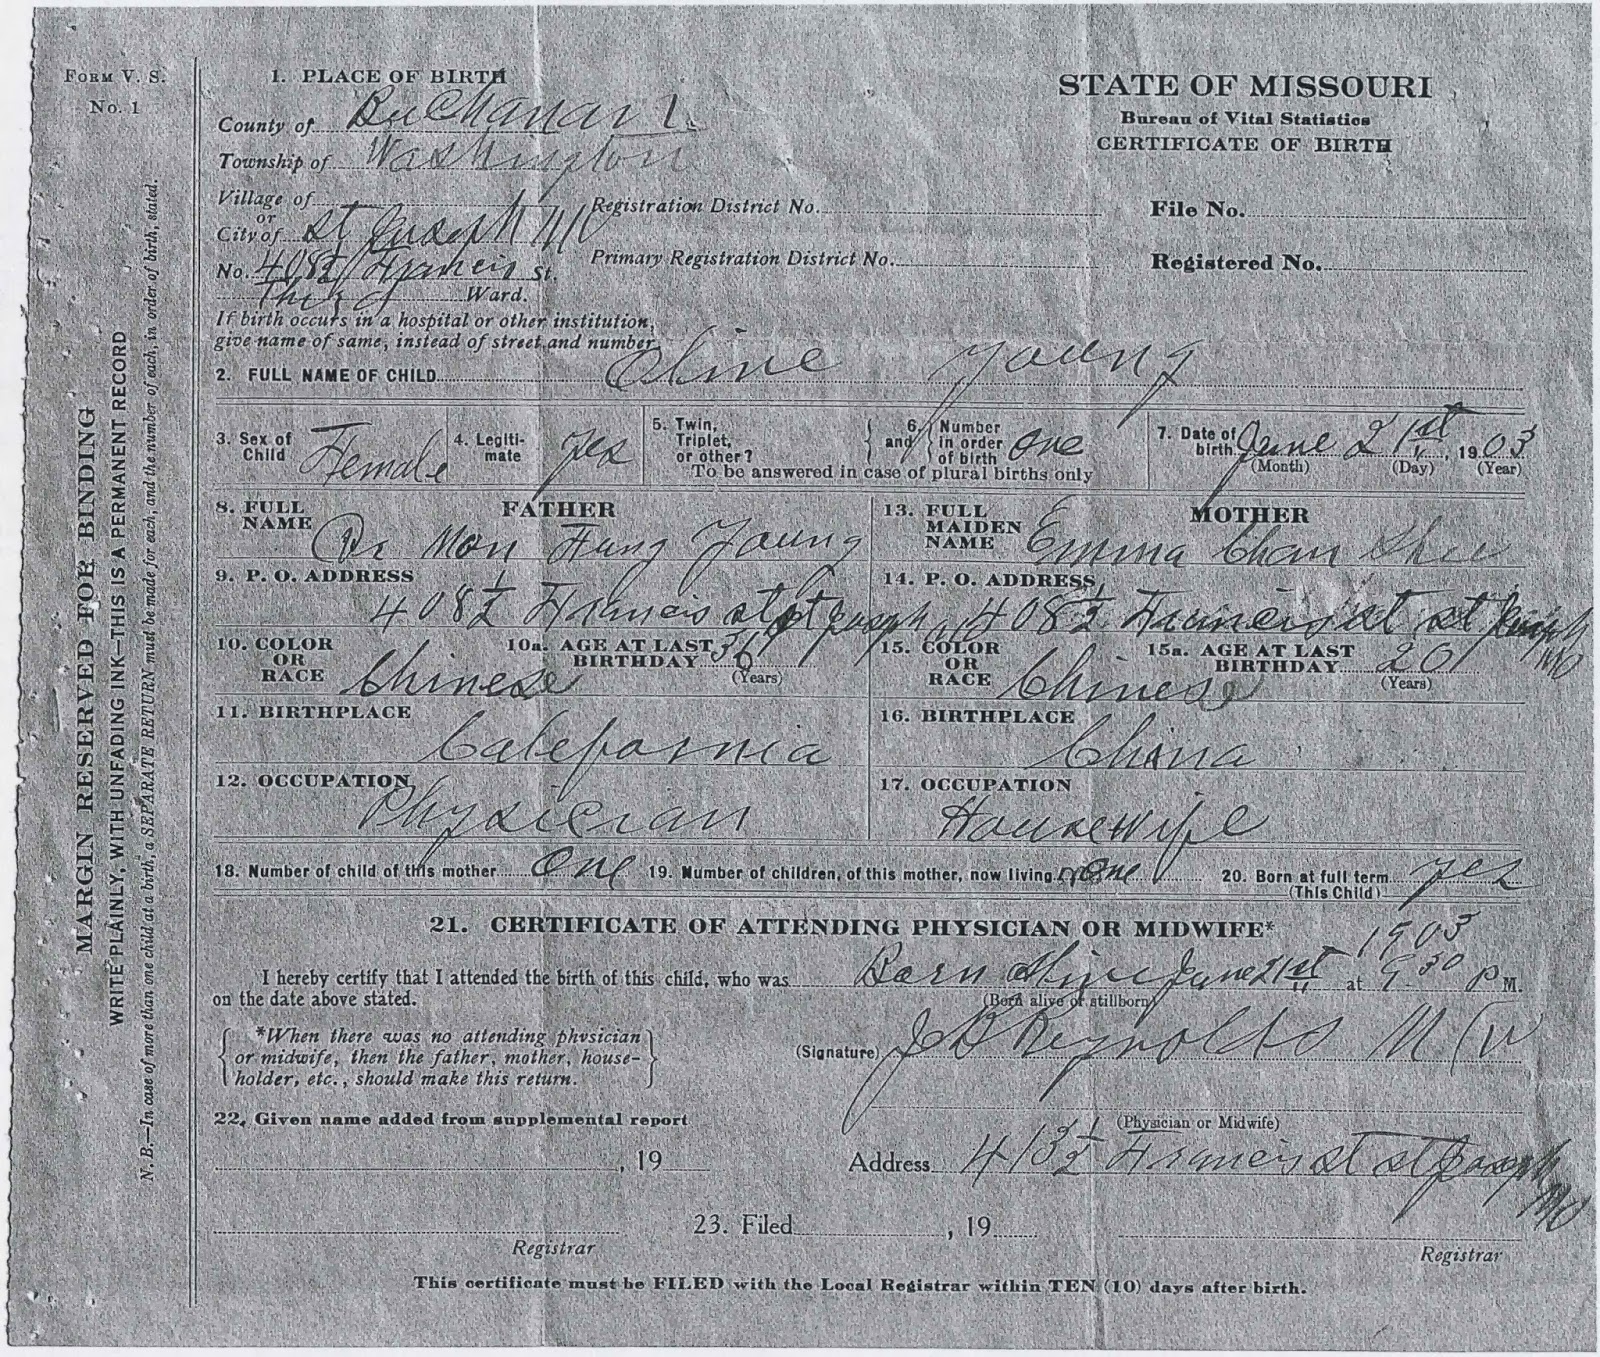 FORM V. S.
No. 1
MARGIN RESERVED FOR BINDING
WRITE PLAINLY, WITH UNFADING INK—THIS IS A PERMANENT RECORD
N. B.—In case of more than one child at a birth, a SEPARATE RETURN must be made for each, and the number of each, in order of birth, stated.
1. PLACE OF BIRTH
County of Buchanan
Township of Washington
Village of
or
City of St Joseph MO
No. 408½ Francis St.
Third Ward.
If birth occurs in a hospital or other institution,
give name of same, instead of street and number
STATE OF MISSOURI
Bureau of Vital Statistics
CERTIFICATE OF BIRTH
Registration District No.
File No.
Primary Registration District No.
Registered No.
2. FULL NAME OF CHILD Oline Young
3. Sex of Child Female
4. Legiti-mate yes
5. Twin, Triplet, or other?
6. and Number in order of birth One
To be answered in case of plural births only
7. Date of birth June 21st, 1903
(Month) (Day) (Year)
FATHER
8. FULL NAME Dr Mon Fung Young
9. P. O. ADDRESS
408½ Francis st st Joseph
10. COLOR OR RACE Chinese
10a. AGE AT LAST BIRTHDAY 36 (Years)
11. BIRTHPLACE
Calefornia
12. OCCUPATION
Physician
MOTHER
13. FULL MAIDEN NAME Emma Chan Shee
14. P. O. ADDRESS
408½ Francis st st Joseph MO
15. COLOR OR RACE Chinese
15a. AGE AT LAST BIRTHDAY 20 (Years)
16. BIRTHPLACE
China
17. OCCUPATION
Housewife
18. Number of child of this mother One 19. Number of children, of this mother, now living One 20. Born at full term yes
(This Child)
21. CERTIFICATE OF ATTENDING PHYSICIAN OR MIDWIFE*
1903
I hereby certify that I attended the birth of this child, who was Born Alive June 21st at 9.30 P M.
on the date above stated.
(Born alive or stillborn)
*When there was no attending physician
or midwife, then the father, mother, house-
holder, etc., should make this return.
(Signature) Reynolds
(Physician or Midwife)
22. Given name added from supplemental report
, 19
Address 413½ Francis st st Joseph MO
Registrar
23. Filed , 19
Registrar
This certificate must be FILED with the Local Registrar within TEN (10) days after birth.